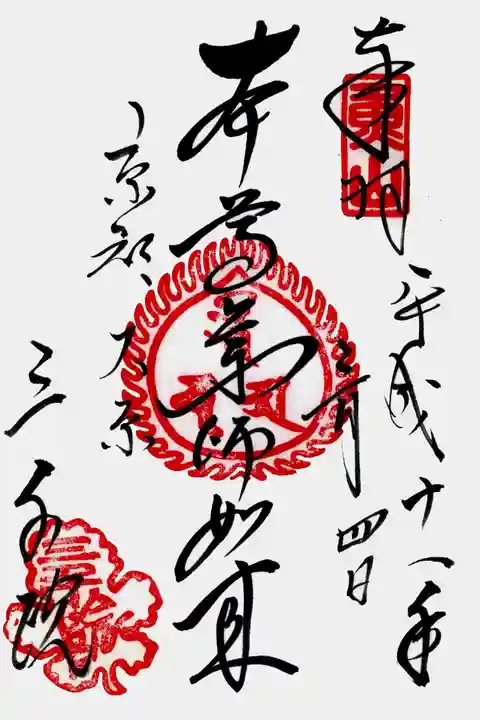 奉拝
平成十一年
三月
四日
本尊薬師如来
京都、大原
三千院